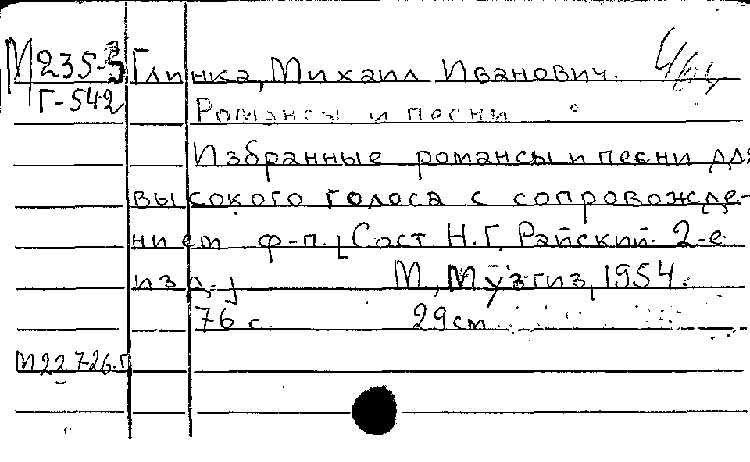 М235-3 Глинка, Михаил Иванович.
Г-542
Романсы и песни
Избранные романсы и песни для
высокого голоса с сопровожде-
нием ф-п. [Сост Н.Г. Райский. 2-е
изд.] М, Музгиз, 1954.
76 с. 29 см
М22726.п